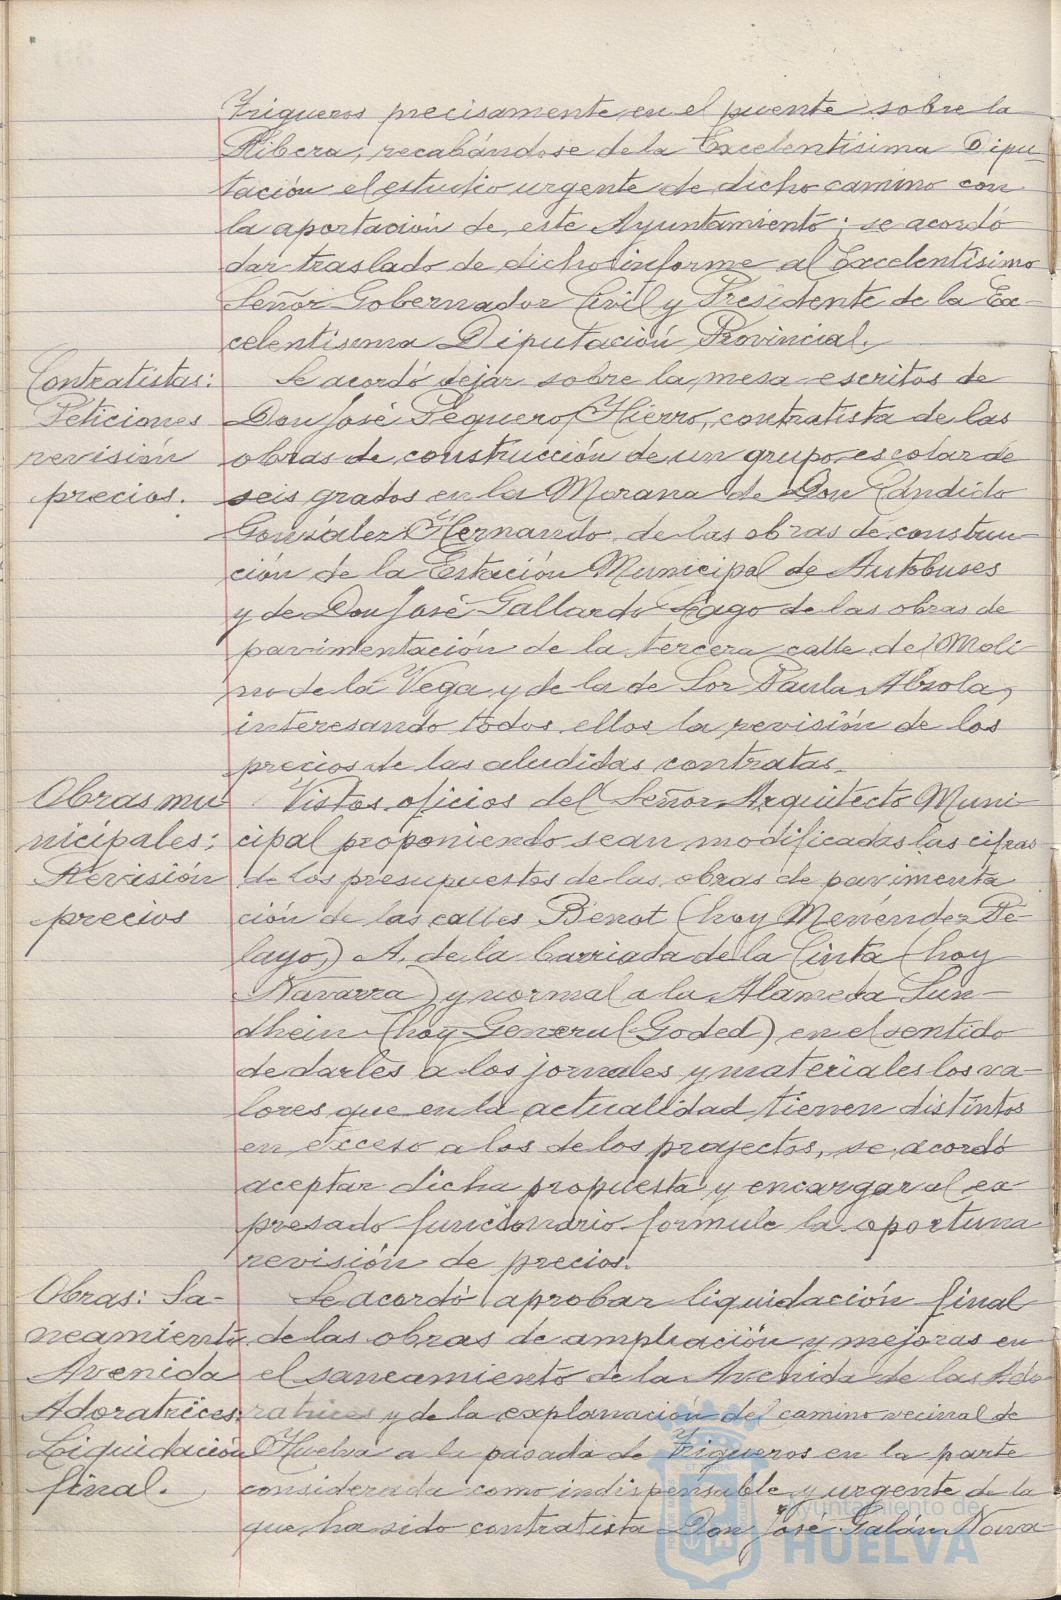 Trigueros precisamente en el puente sobre la
Ribera, recabándose de la Excelentísima Dipu-
tación el estudio urgente de dicho camino con
la aportación de este Ayuntamiento; se acordó
dar traslado de dicho informe al Excelentísimo
Señor Gobernador Civil y Presidente de la Ex-
celentísima Diputación Provincial.
Contratistas:
Peticiones
revisión
precios.
Se acordó dejar sobre la mesa escritos de
Don José Peguero Hierro, contratista de las
obras de construcción de un grupo escolar de
seis grados en la Morana de Don Cándido
González Hernando, de las obras de construc-
ción de la Estación Municipal de Autobuses
y de Don José Gallardo Lago de las obras de
pavimentación de la tercera calle del Moli-
no de la Vega y de la de Sor Paula Alzola,
interesando todos ellos la revisión de los
precios de las aludidas contratas.
Obras mu
nicipales:
Revisión
precios
Vistos oficios del Señor Arquitecto Muni-
cipal proponiendo sean modificadas las cifras
de los presupuestos de las obras de pavimenta
ción de las calles Benot (hoy Menéndez Pe-
layo,) A. de la barriada de la Cinta (hoy
Navarra) y normal a la Alameda Sun-
dhein (hoy General Goded) en el sentido
de darles a los jornales y materiales los va-
lores que en la actualidad tienen distintos
en exceso a los de los proyectos, se acordó
aceptar dicha propuesta y encargar al ex
presado funcionario formule la oportuna
revisión de precios.
Obras: Sa-
neamiento
Avenida
Adoratrices:
Liquidación
final.
Se acordó aprobar liquidación final
de las obras de ampliación y mejoras en
el saneamiento de la Avenida de las Ado
ratrices y de la explanación del camino vecinal de
Huelva a la pasada de Trigueros en la parte
considerada como indispensable y urgente de la
que ha sido contratista Don José Galán Nava-
Ayuntamiento de
HUELVA